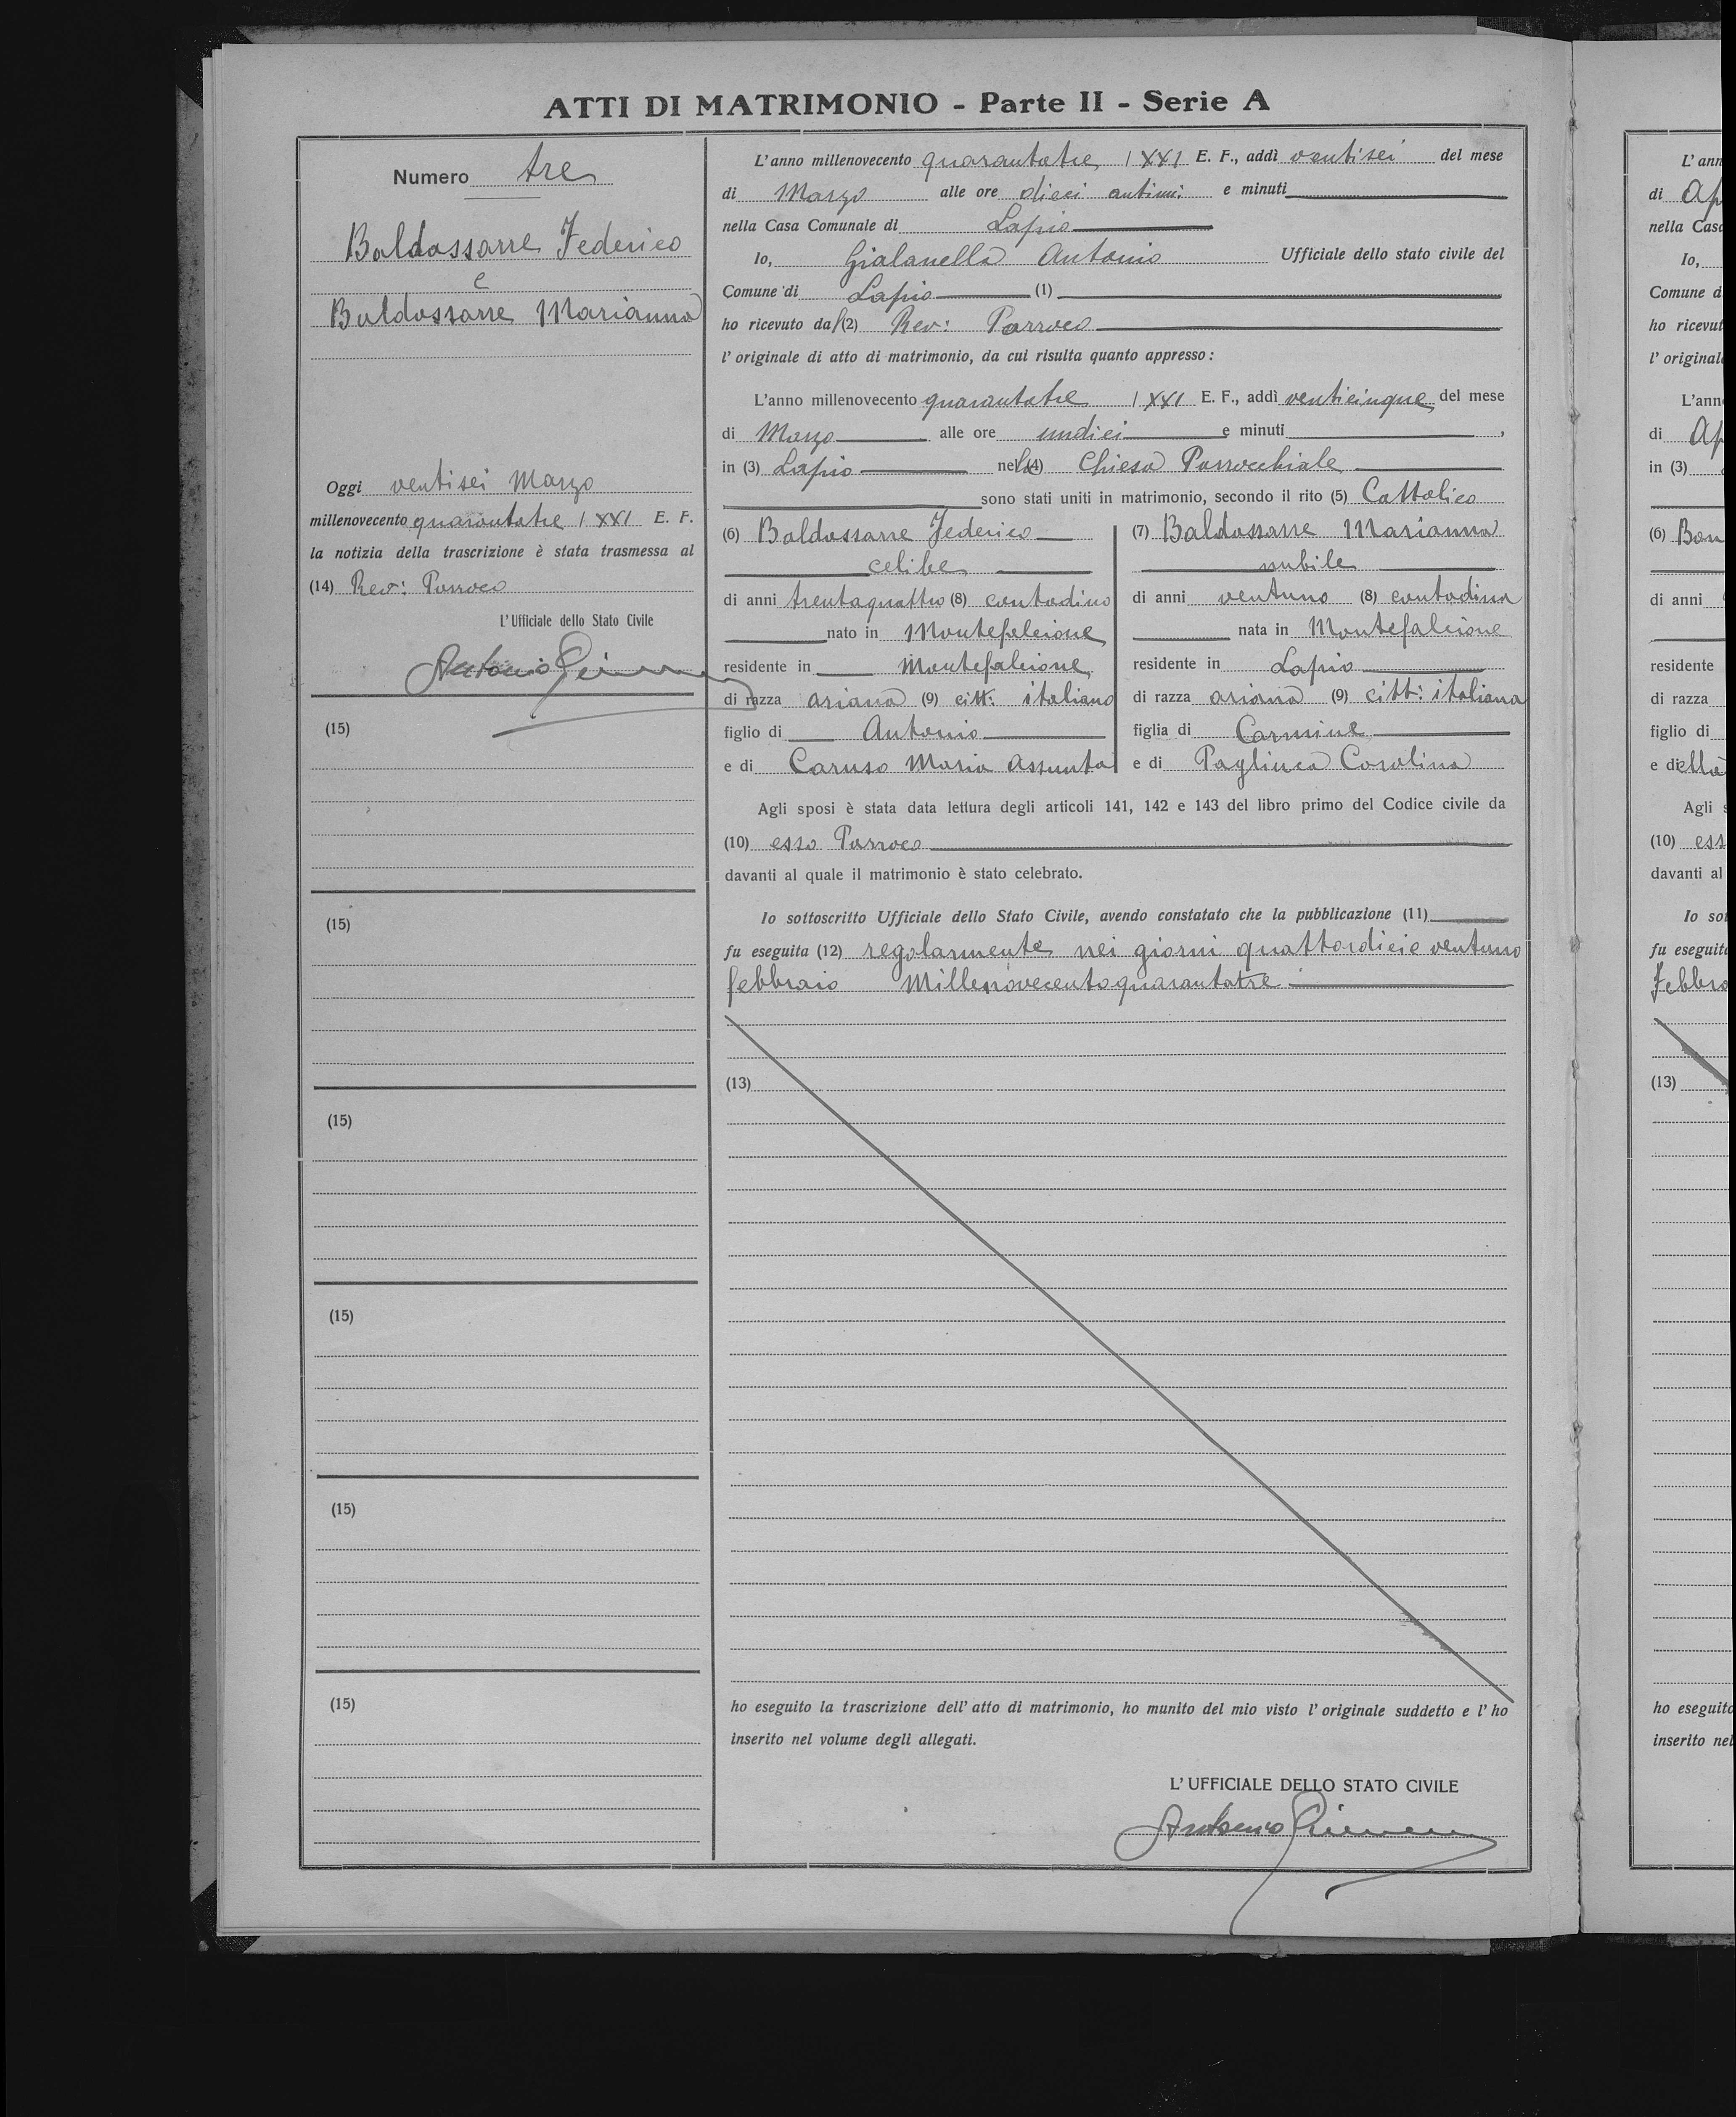 ATTI DI MATRIMONIO - Parte II - Serie A
Numero tre
Baldassarre Federico
e
Baldassarre Marianna
Oggi ventisei Marzo
millenovecento quarantatre / XXI E. F.
la notizia della trascrizione è stata trasmessa al
(14) Rev: Parroco
L'Ufficiale dello Stato Civile
Antonio
(15)
(15)
(15)
(15)
(15)
(15)
L'anno millenovecento quarantatre / XXI E. F., addì ventisei del mese
di Marzo alle ore dieci antim: e minuti
nella Casa Comunale di Lapio
Io, Gialanella Antonio Ufficiale dello stato civile del
Comune di Lapio (1)
ho ricevuto dal (2) Rev: Parroco
l'originale di atto di matrimonio, da cui risulta quanto appresso:
L'anno millenovecento quarantatre / XXI E. F., addì venticinque del mese
di Marzo alle ore undici e minuti ,
in (3) Lapio nella (4) Chiesa Parrocchiale
sono stati uniti in matrimonio, secondo il rito (5) Cattolico
(6) Baldassarre Federico
celibe
di anni trentaquattro (8) contadino
nato in Montefalcione
residente in Montefalcione
di razza ariana (9) citt: italiano
figlio di Antonio
e di Caruso Maria Assunta
(7) Baldassarre Marianna
nubile
di anni ventuno (8) contadina
nata in Montefalcione
residente in Lapio
di razza ariana (9) citt: italiana
figlia di Carmine
e di Pagliuca Carolina
Agli sposi è stata data lettura degli articoli 141, 142 e 143 del libro primo del Codice civile da
(10) esso Parroco
davanti al quale il matrimonio è stato celebrato.
Io sottoscritto Ufficiale dello Stato Civile, avendo constatato che la pubblicazione (11)
fu eseguita (12) regolarmente nei giorni quattordici e ventuno
febbraio Millenovecentoquarantatre
(13)
ho eseguito la trascrizione dell'atto di matrimonio, ho munito del mio visto l'originale suddetto e l'ho
inserito nel volume degli allegati.
L'UFFICIALE DELLO STATO CIVILE
Antonio
L'ann
di Ap
nella Casa
Io,
Comune d
ho ricevut
l'original
L'ann
di Ap
in (3)
(6) Bon
di anni
residente
di razza
figlio di
e di
Agli s
(10) ess
davanti al
Io sot
fu eseguit
Febbra
(13)
ho eseguito
inserito nel